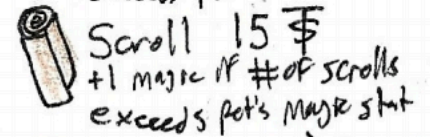 Scroll 15 $
+1 magic if # of scrolls
exceeds pet's magic stat